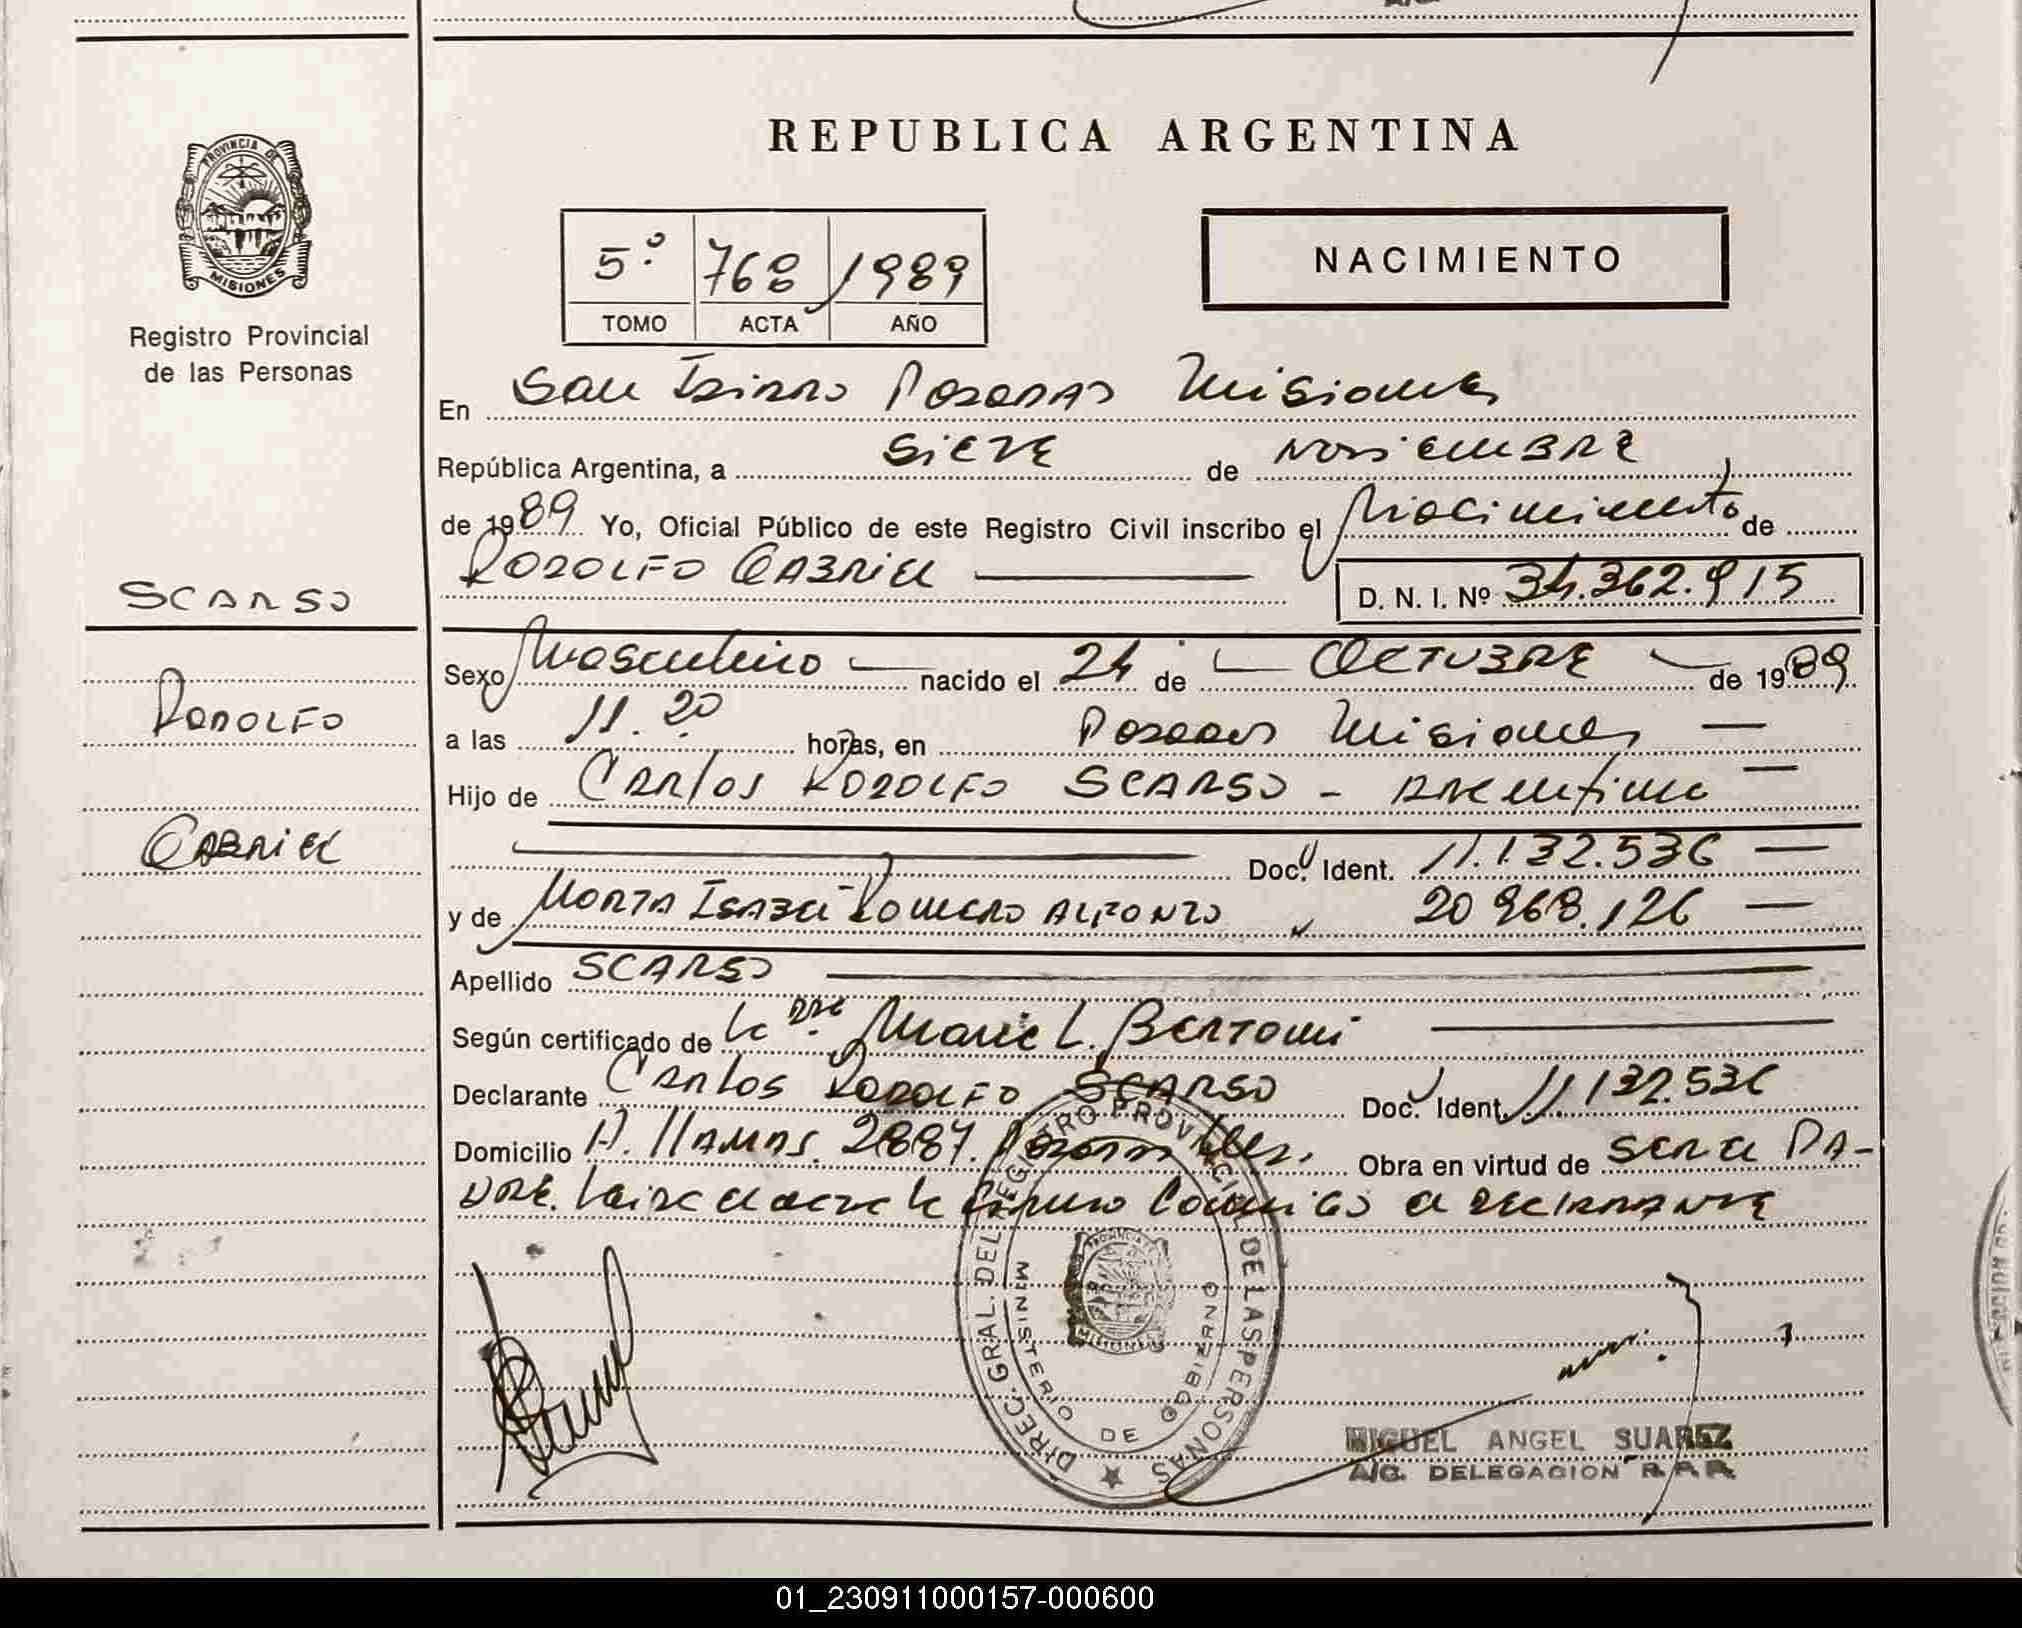 REPUBLICA ARGENTINA
PROVINCIA DE
MISIONES
Registro Provincial
de las Personas
5º 768 1989
TOMO ACTA AÑO
NACIMIENTO
En San Isidro Posadas Misiones
República Argentina, a SieTE de NoviemBRE
de 1989 Yo, Oficial Público de este Registro Civil inscribo el Nacimiento de
RODOLFO GABRIEL
D. N. I. Nº 34.362.915
SCARSO
RODOLFO
GABRIEL
Sexo Masculino nacido el 24 de OCTUBRE de 1989
a las 11.20 horas, en Posadas Misiones
Hijo de CARlos RODOLFO SCARSO - ARGentino
Doc. Ident. 11.132.536
y de Isabel Romero ALFONZO 20 968.126
Apellido SCARSO
Según certificado de L. BERTONI
Declarante CARlos RODOLFO SCARSO Doc. Ident. 11 132.536
Domicilio 2887. Posadas Obra en virtud de SER el PA-
DRE. el DECLARANTE
DIREC. GRAL. DEL REGISTRO PROVINCIAL DE LAS PERSONAS
MINISTERIO DE GOBIERNO
MISIONES
MIGUEL ANGEL SUAREZ
A/C. DELEGACION R.P.P.
01_230911000157-000600